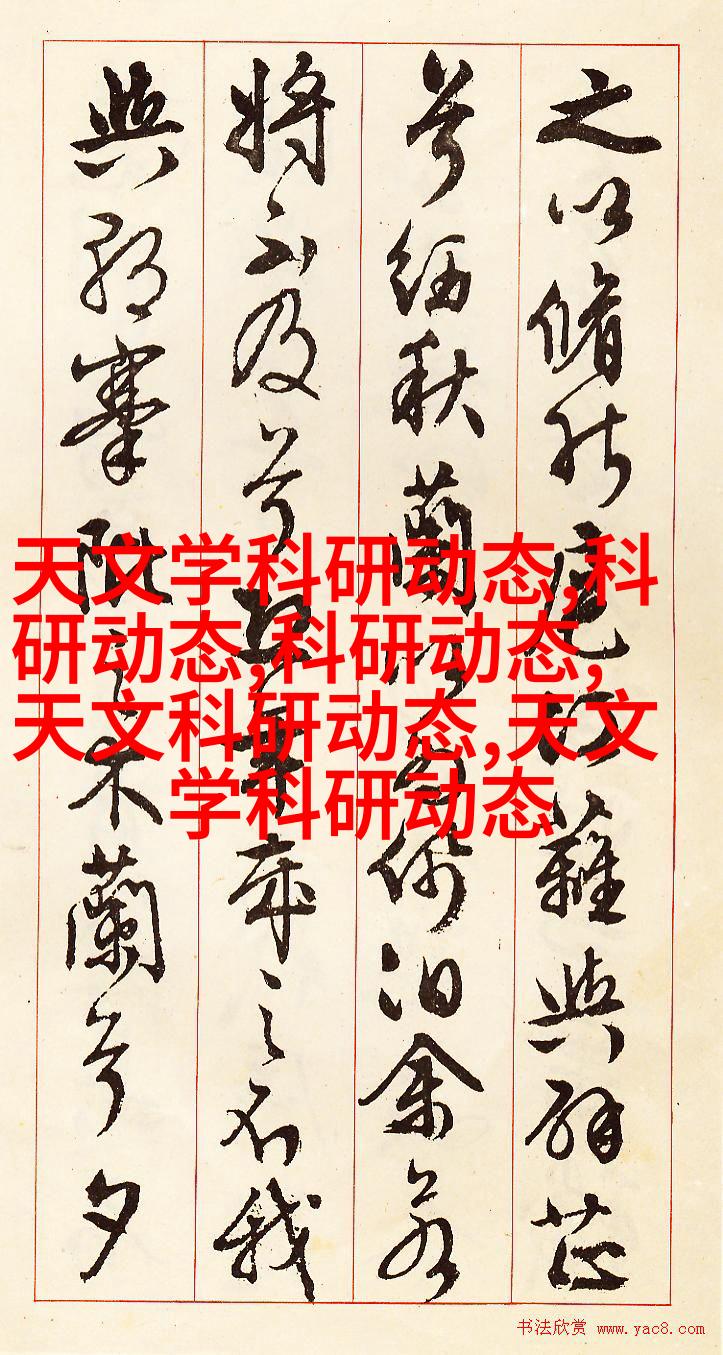 之以脩能扈江蘺與辟芷
兮紉秋蘭以為佩汩余若
將不及兮恐年歲之不我
與朝搴阰之木蘭兮夕
天文学科研动态,科
研动态,科研动态,
天文科研动态,天文
学科研动态
书法欣赏 www.yac8.com